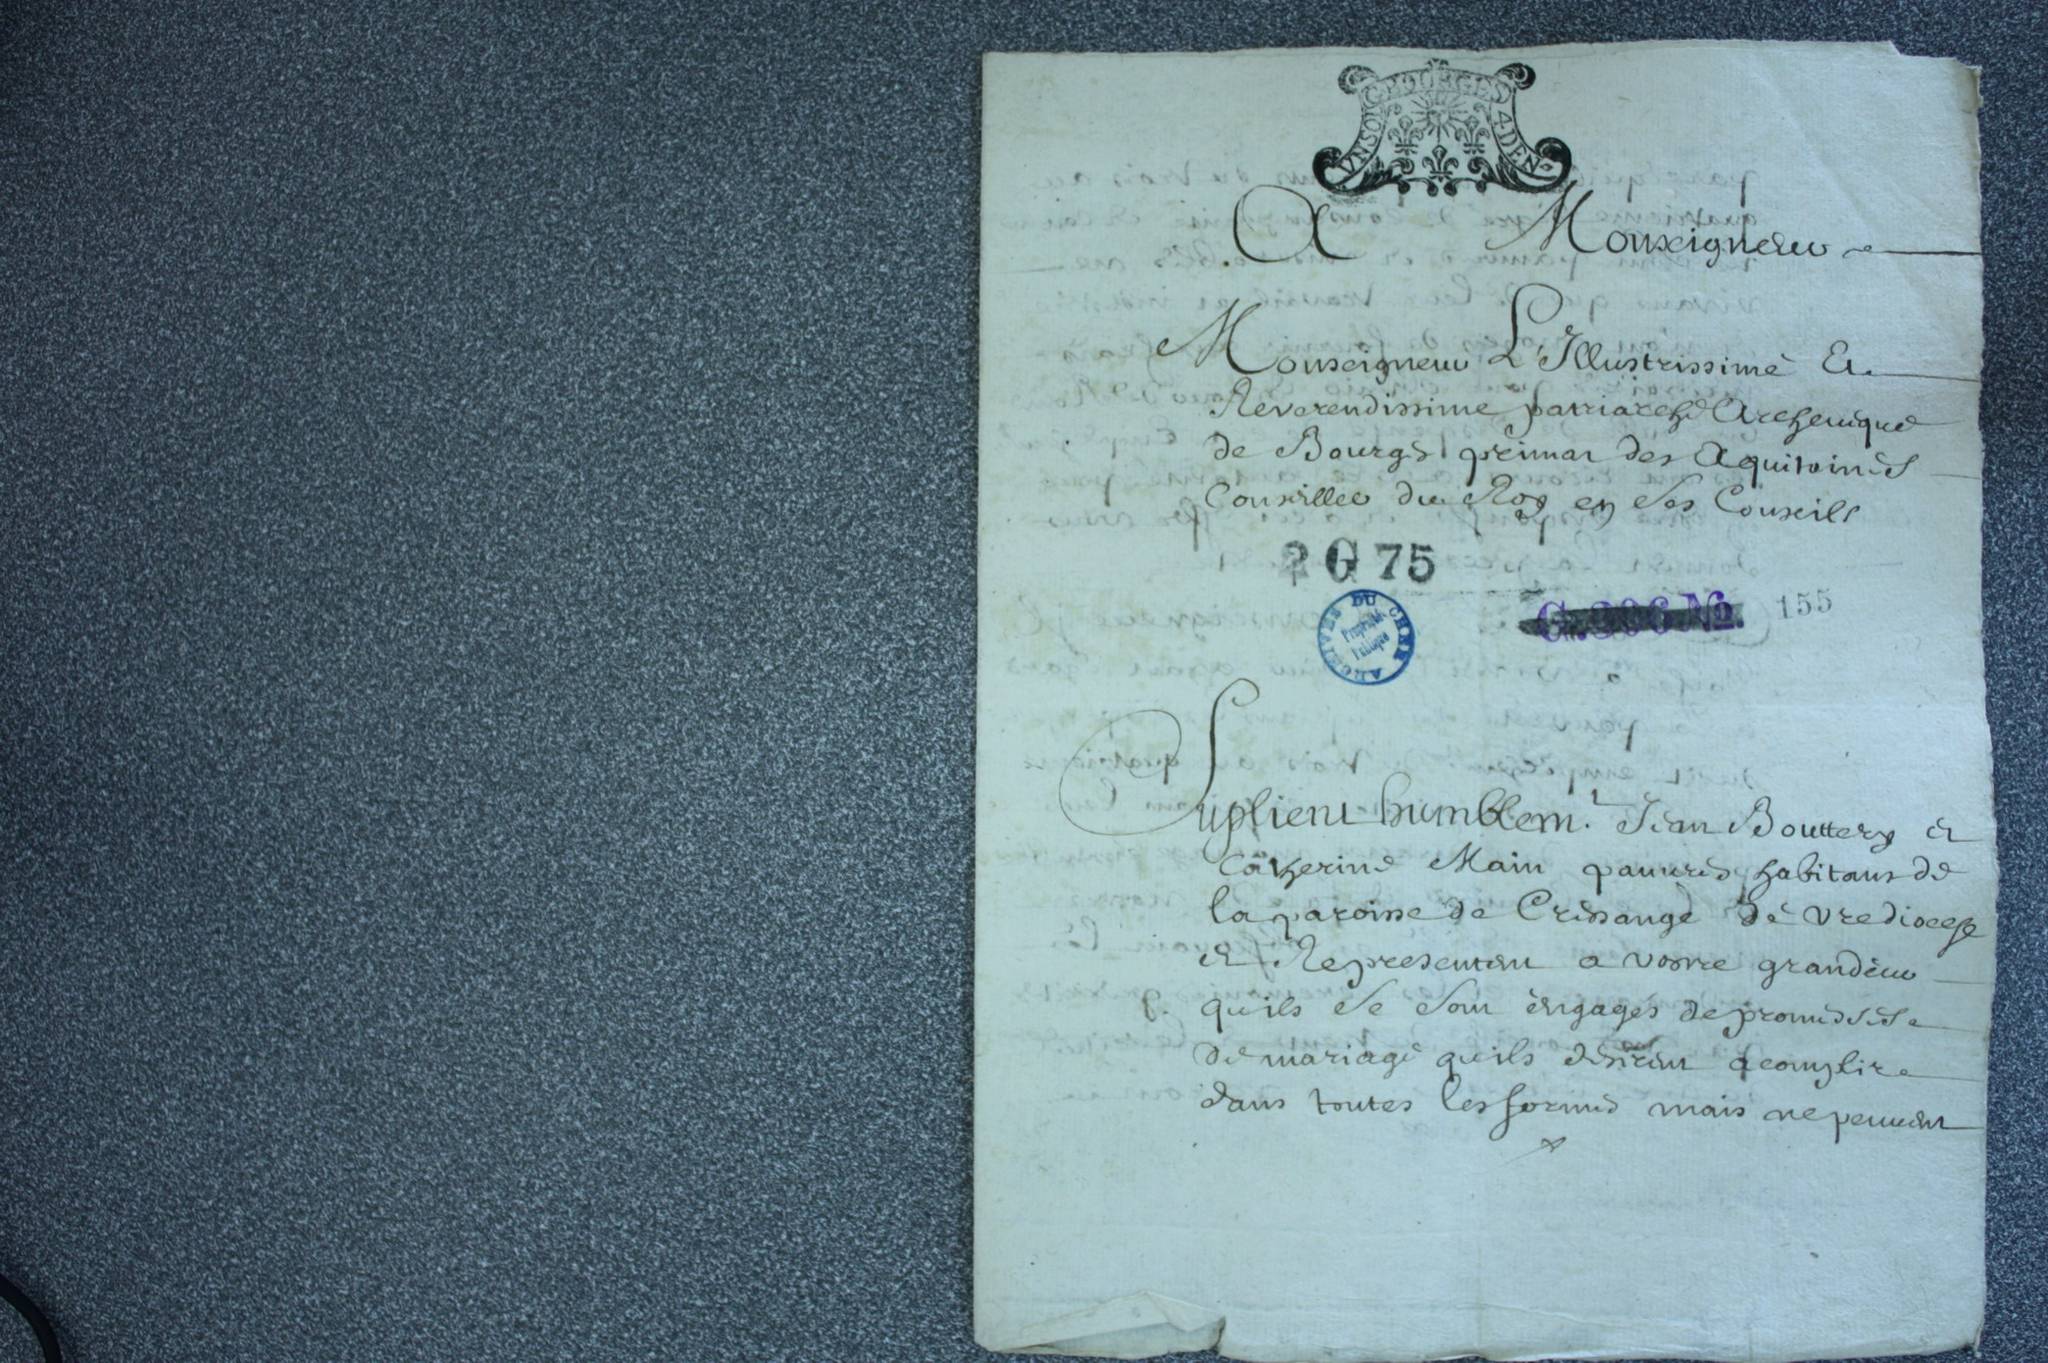 VNSOL BOURGES 4DEN.
A Monseigneur
Monseigneur L'Illustrissime Et
Reverendissime patriarche Archeuique
de Bourges primat des Aquitaines
Conseiller du Roy en Ses Conseils
2 G 75
ARCHIVES DU CHER
Propriété
Publique
G. 306 No. 155
Suplient humblemt. Jean Bouttery et
Catherine Main pauures habitans de
la paroisse de Cressange de vre diocese
et Representent a vostre grandeur
quils Se Sont engagés de promesses
de mariage quils desirent acomplir
dans toutes les formes mais ne peuuent